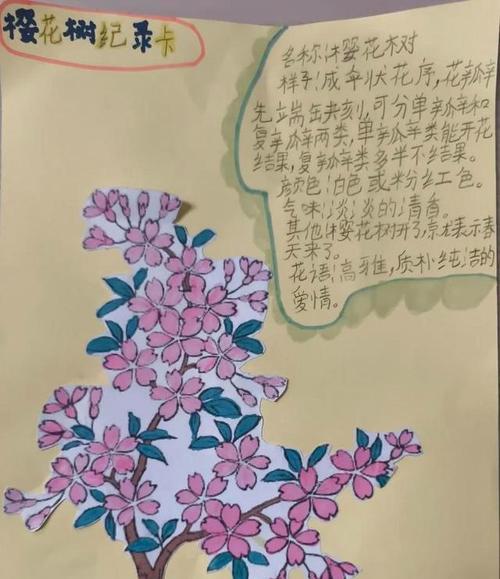 樱花树纪录卡
名称:樱花树
样子:成伞状花序,花瓣
先端缺刻,可分单瓣和
复瓣两类,单瓣类能开花
结果,复瓣类多半不结果。
颜色:白色或粉红色。
气味:淡淡的清香。
其他:樱花树开了就表示春
天来了。
花语:高雅,质朴纯洁的
爱情。